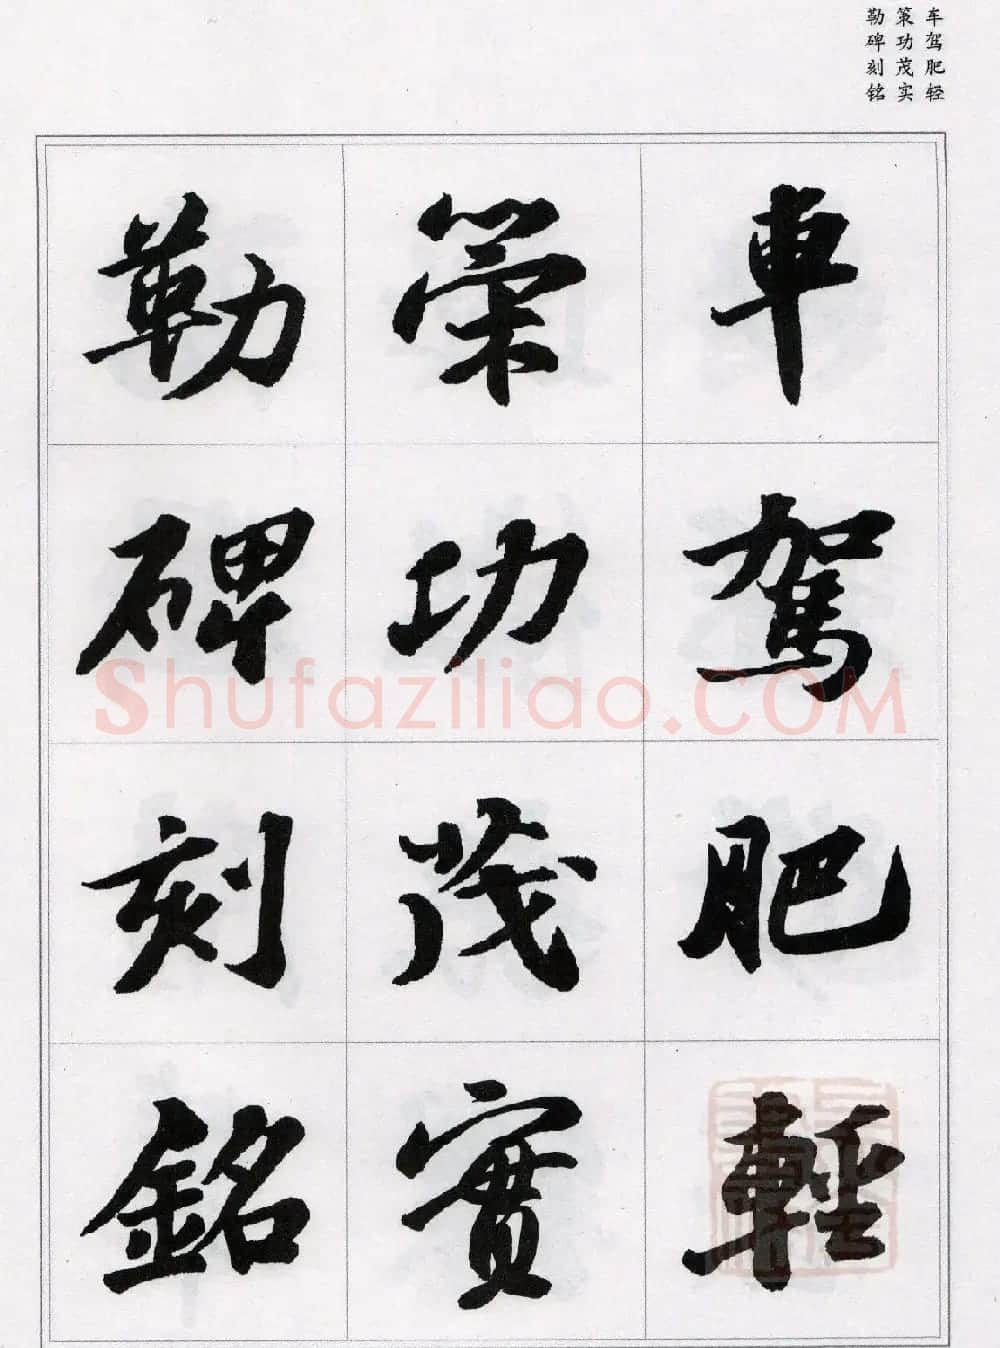 车驾肥轻
策功茂实
勒碑刻铭
車駕肥輕
策功茂實
勒碑刻銘
Shufaziliao.COM